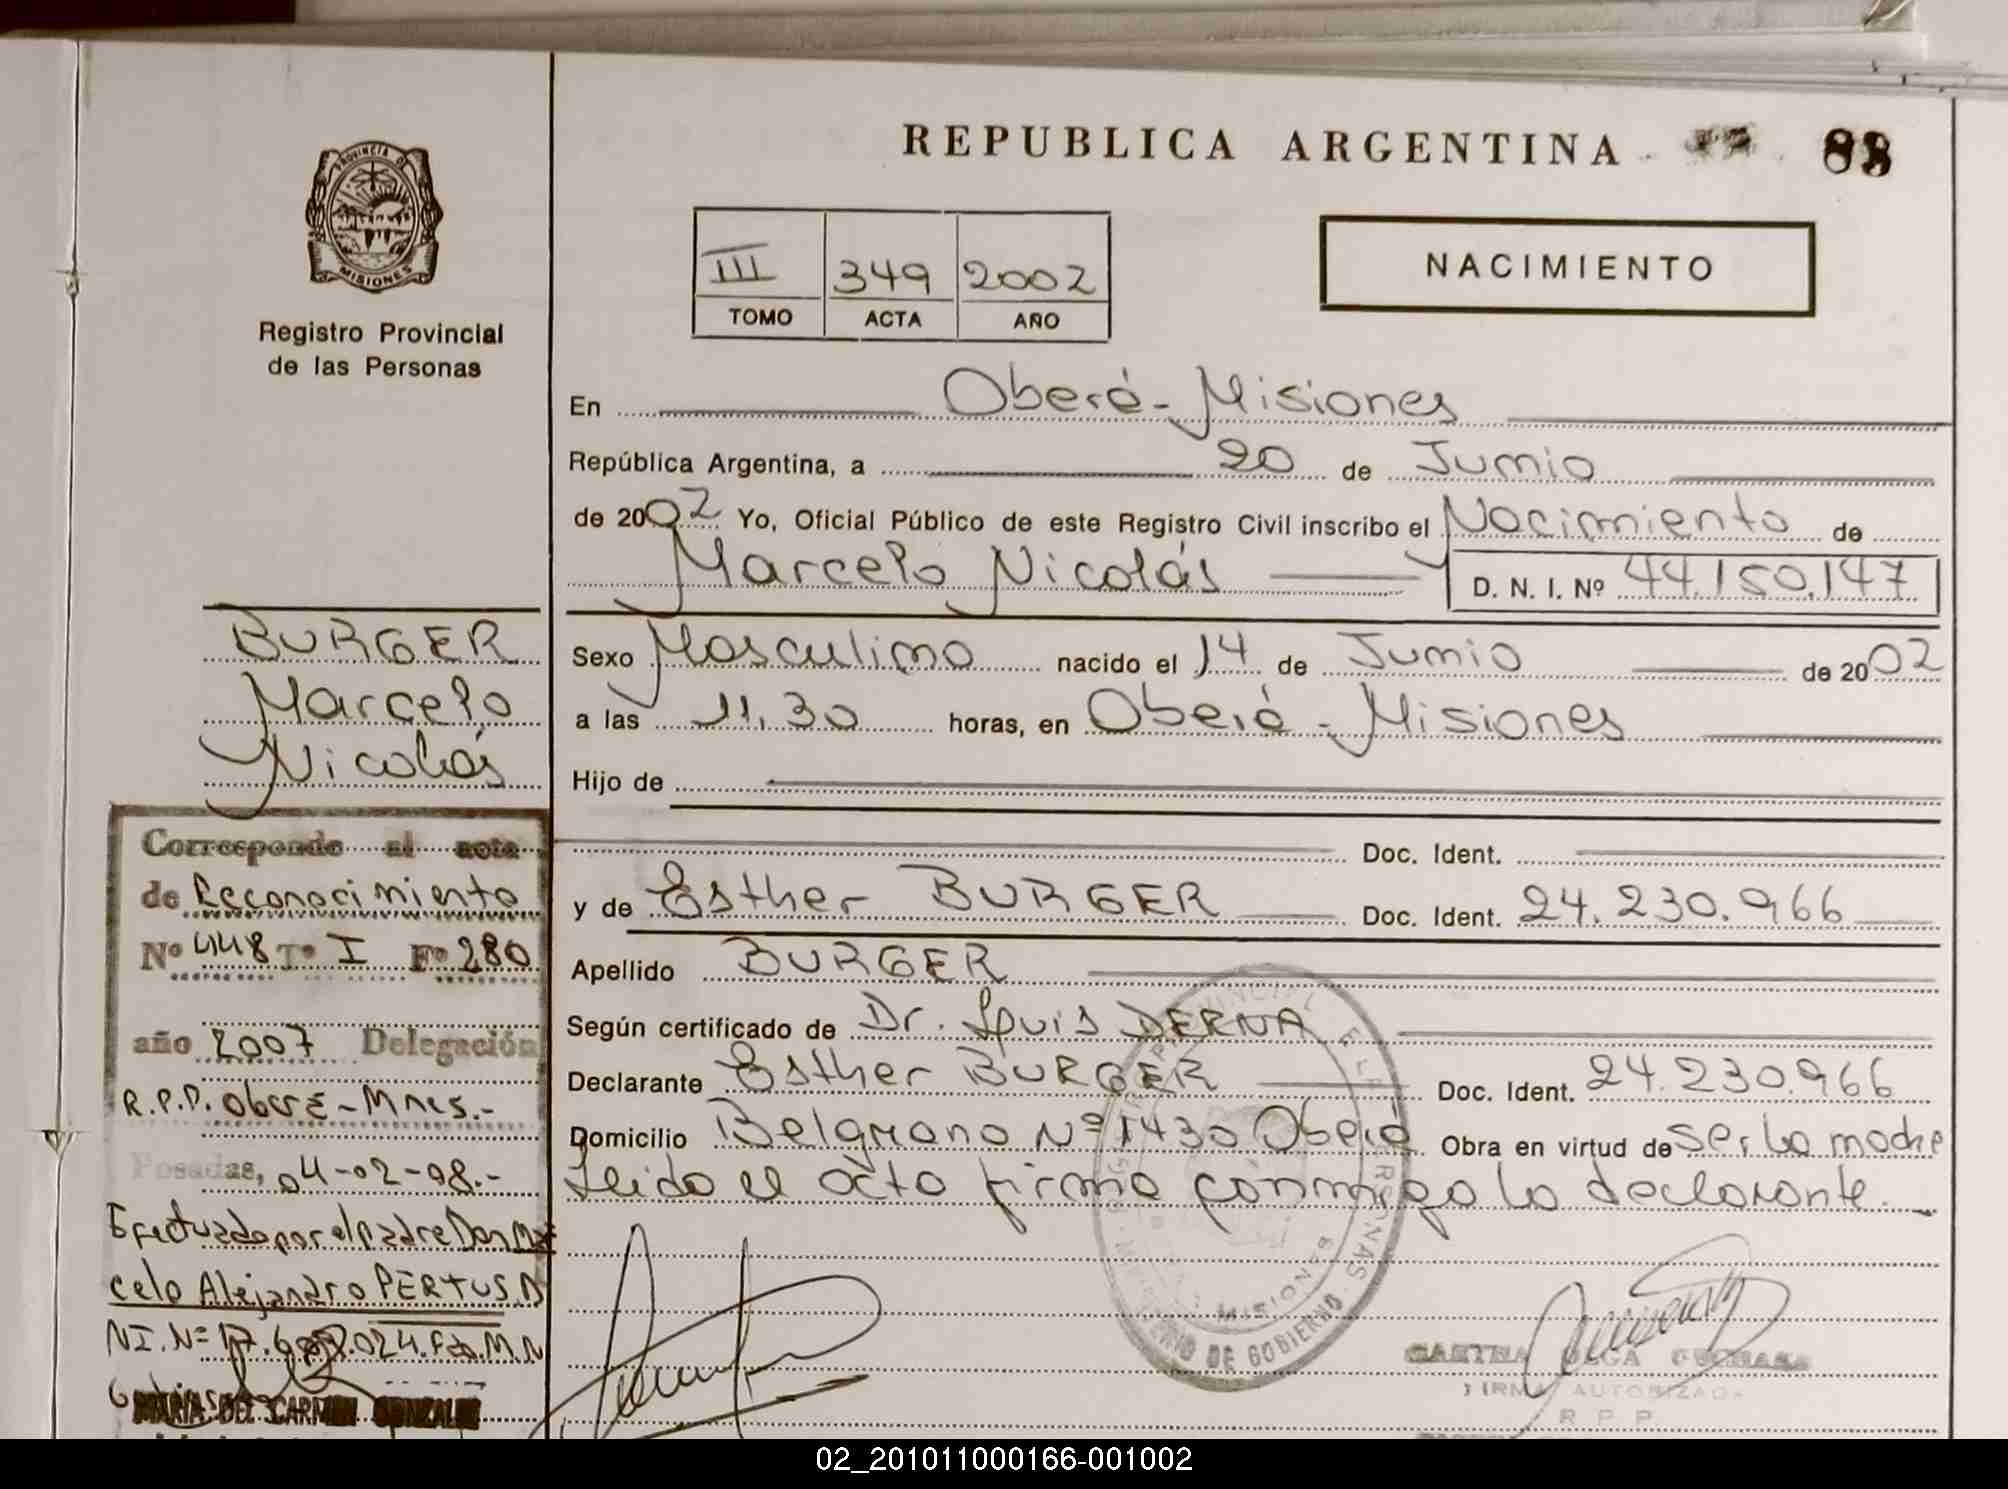 REPUBLICA ARGENTINA
88
PROVINCIA DE
MISIONES
Registro Provincial
de las Personas
III 349 2002
TOMO ACTA AÑO
NACIMIENTO
En Oberá - Misiones
República Argentina, a 20 de Junio
de 2002 Yo, Oficial Público de este Registro Civil inscribo el Nacimiento de
Marcelo Nicolás D. N. I. Nº 44.150.147
Sexo Masculino nacido el 14 de Junio de 2002
a las 11.30 horas, en Oberá - Misiones
Hijo de
Doc. Ident.
y de Esther BURGER Doc. Ident. 24.230.966
Apellido BURGER
Según certificado de Dr. Luis DERNA
Declarante Esther BURGER Doc. Ident. 24.230.966
Domicilio Belgrano Nº 1430 Oberá Obra en virtud de ser la madre
Leido el acta firma conmigo la declarante.
BURGER
Marcelo
Nicolás
Corresponde al acta
de Reconocimiento
Nº 448 Tº I Fº 280
año 2007 Delegación
R.P.P. Oberá - Mnes.-
Posadas, 04-02-08.-
Efectuado por el padre Don Mar
celo Alejandro PERTUS.D
NI.Nº 17. .024.Fdo.M.M
MARIA DEL CARMEN GONZALEZ
MINISTERIO DE GOBIERNO
MISIONES
OLGA
FIRMA AUTORIZADA
R P P
02_201011000166-001002